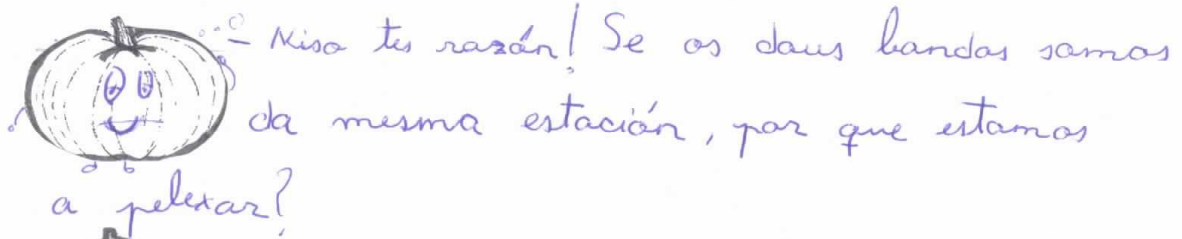 - Niso tes razón! Se os dous bandos somos
da mesma estación, por que estamos
a pelexar?